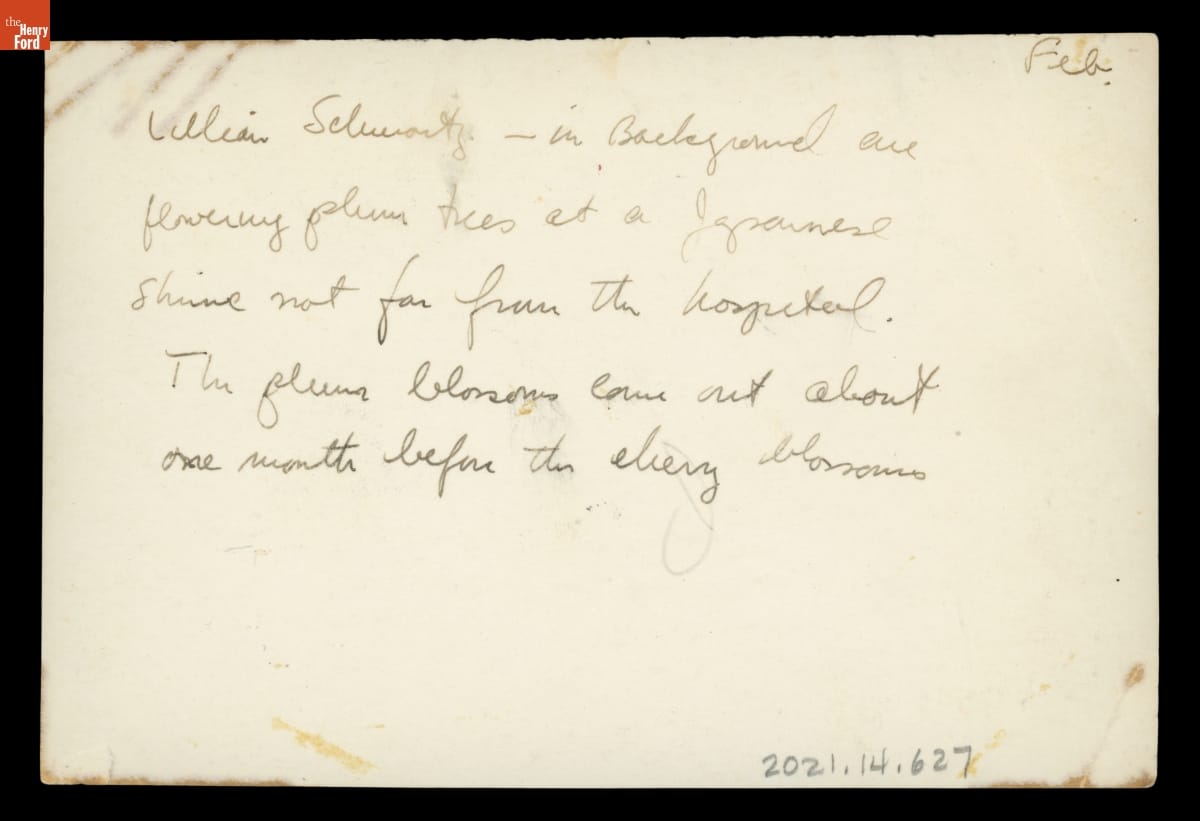 the Henry Ford
Feb.
Lillian Schwartz - in Background are
flowering plum trees at a Japanese
Shrine not far from the hospital.
The plum blossoms come out about
one month before the cherry blossoms
2021.14.627